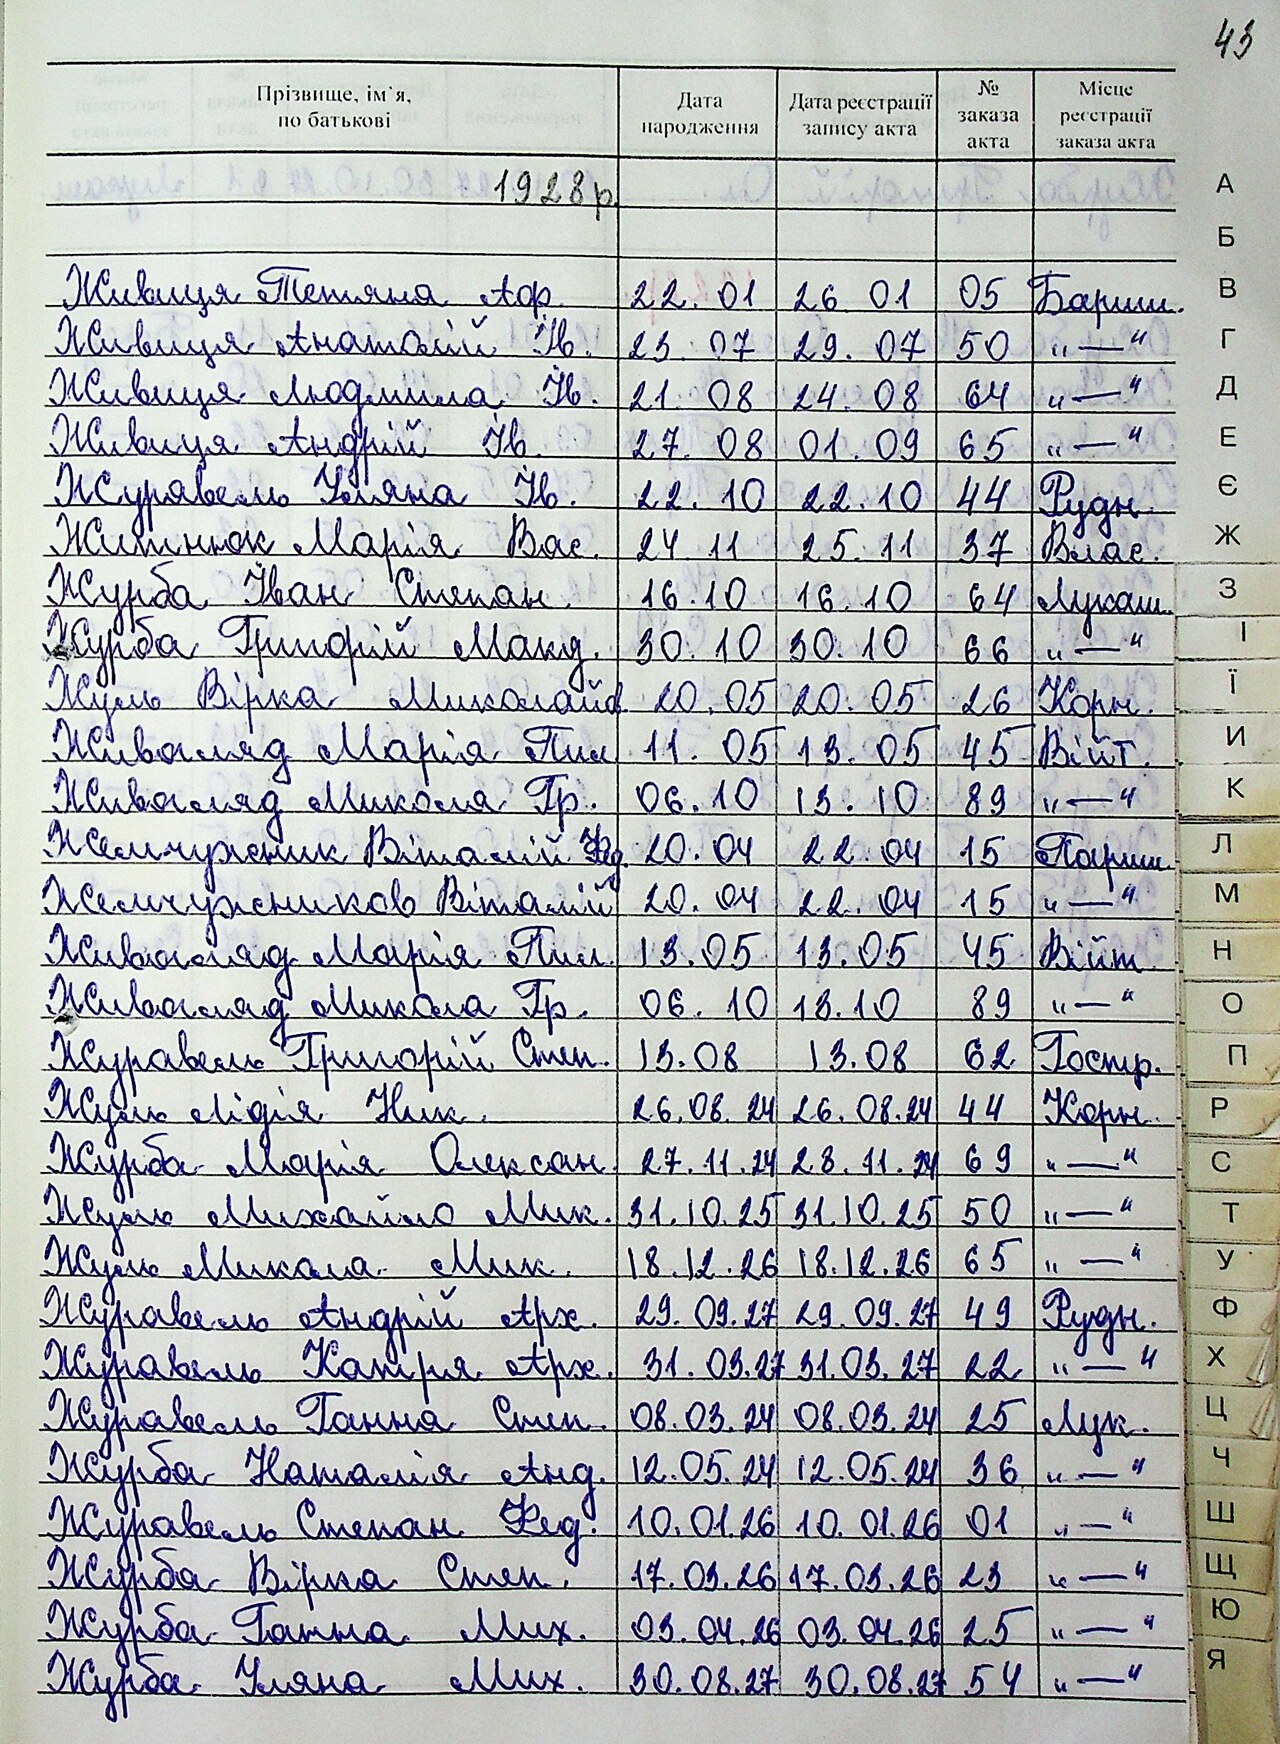 43
Прізвище, ім'я, по батькові Дата народження Дата реєстрації запису акта № заказа акта Місце реєстрації заказа акта
1928р.
Живиця Тетяна Аф. 22.01 26 01 05 Бариш.
Живиця Анатолій Ів. 23. 07 29. 07 50 „—“
Живиця Людмила Ів. 21. 08 24. 08 64 „—“
Живиця Андрій Ів. 27. 08 01. 09 65 „—“
Журавель Уляна Ів. 22. 10 22. 10 44 Рудн.
Житнюк Марія Вас. 24 11 25. 11 37 Влас.
Журба Іван Степан. 16.10 16.10 64 Лукаш.
Журба Григорій Макд. 30. 10 30. 10 66 „—“
Жуль Вірка Миколаїв. 20.05 20.05 26 Корн.
Живогляд Марія Пил 11. 05 13. 05 45 Війт.
Живогляд Микола Гр. 06. 10 13. 10 89 „—“
Жемчужник Віталій Фед. 20. 04 22. 04 15 Париш.
Жемчужников Віталій 20. 04 22. 04 15 „—“
Живогляд Марія Пил. 13.05 13.05 45 Війт
Живогляд Микола Гр. 06. 10 13.10 89 „—“
Журавель Григорій Степ. 13.08 13.08 62 Гостр.
Жуль Лідія Ник. 26.08.24 26.08.24 44 Корн.
Журба Марія Олексан. 27.11.24 28.11.24 69 „—“
Жуль Михайло Мик. 31.10.25 31.10.25 50 „—“
Жуль Микола Мик. 18.12.26 18.12.26 65 „—“
Журавель Андрій Арх. 29.09.27 29.09.27 49 Рудн.
Журавель Катря Арх. 31.03.27 31.03.27 22 „—“
Журавель Ганна Степ. 08.03.24 08.03.24 25 Лук.
Журба Наталія Анд. 12.05.24 12.05.24 36 „—“
Журавель Степан Фед. 10.01.26 10.01.26 01 „—“
Журба Вірка Степ. 17.03.26 17.03.26 23 „—“
Журба Ганна Мих. 03.04.26 03.04.26 25 „—“
Журба Уляна Мих. 30.08.27 30.08.27 54 „—“
А
Б
В
Г
Д
Е
Є
Ж
З
І
Ї
И
К
Л
М
Н
О
П
Р
С
Т
У
Ф
Х
Ц
Ч
Ш
Щ
Ю
Я